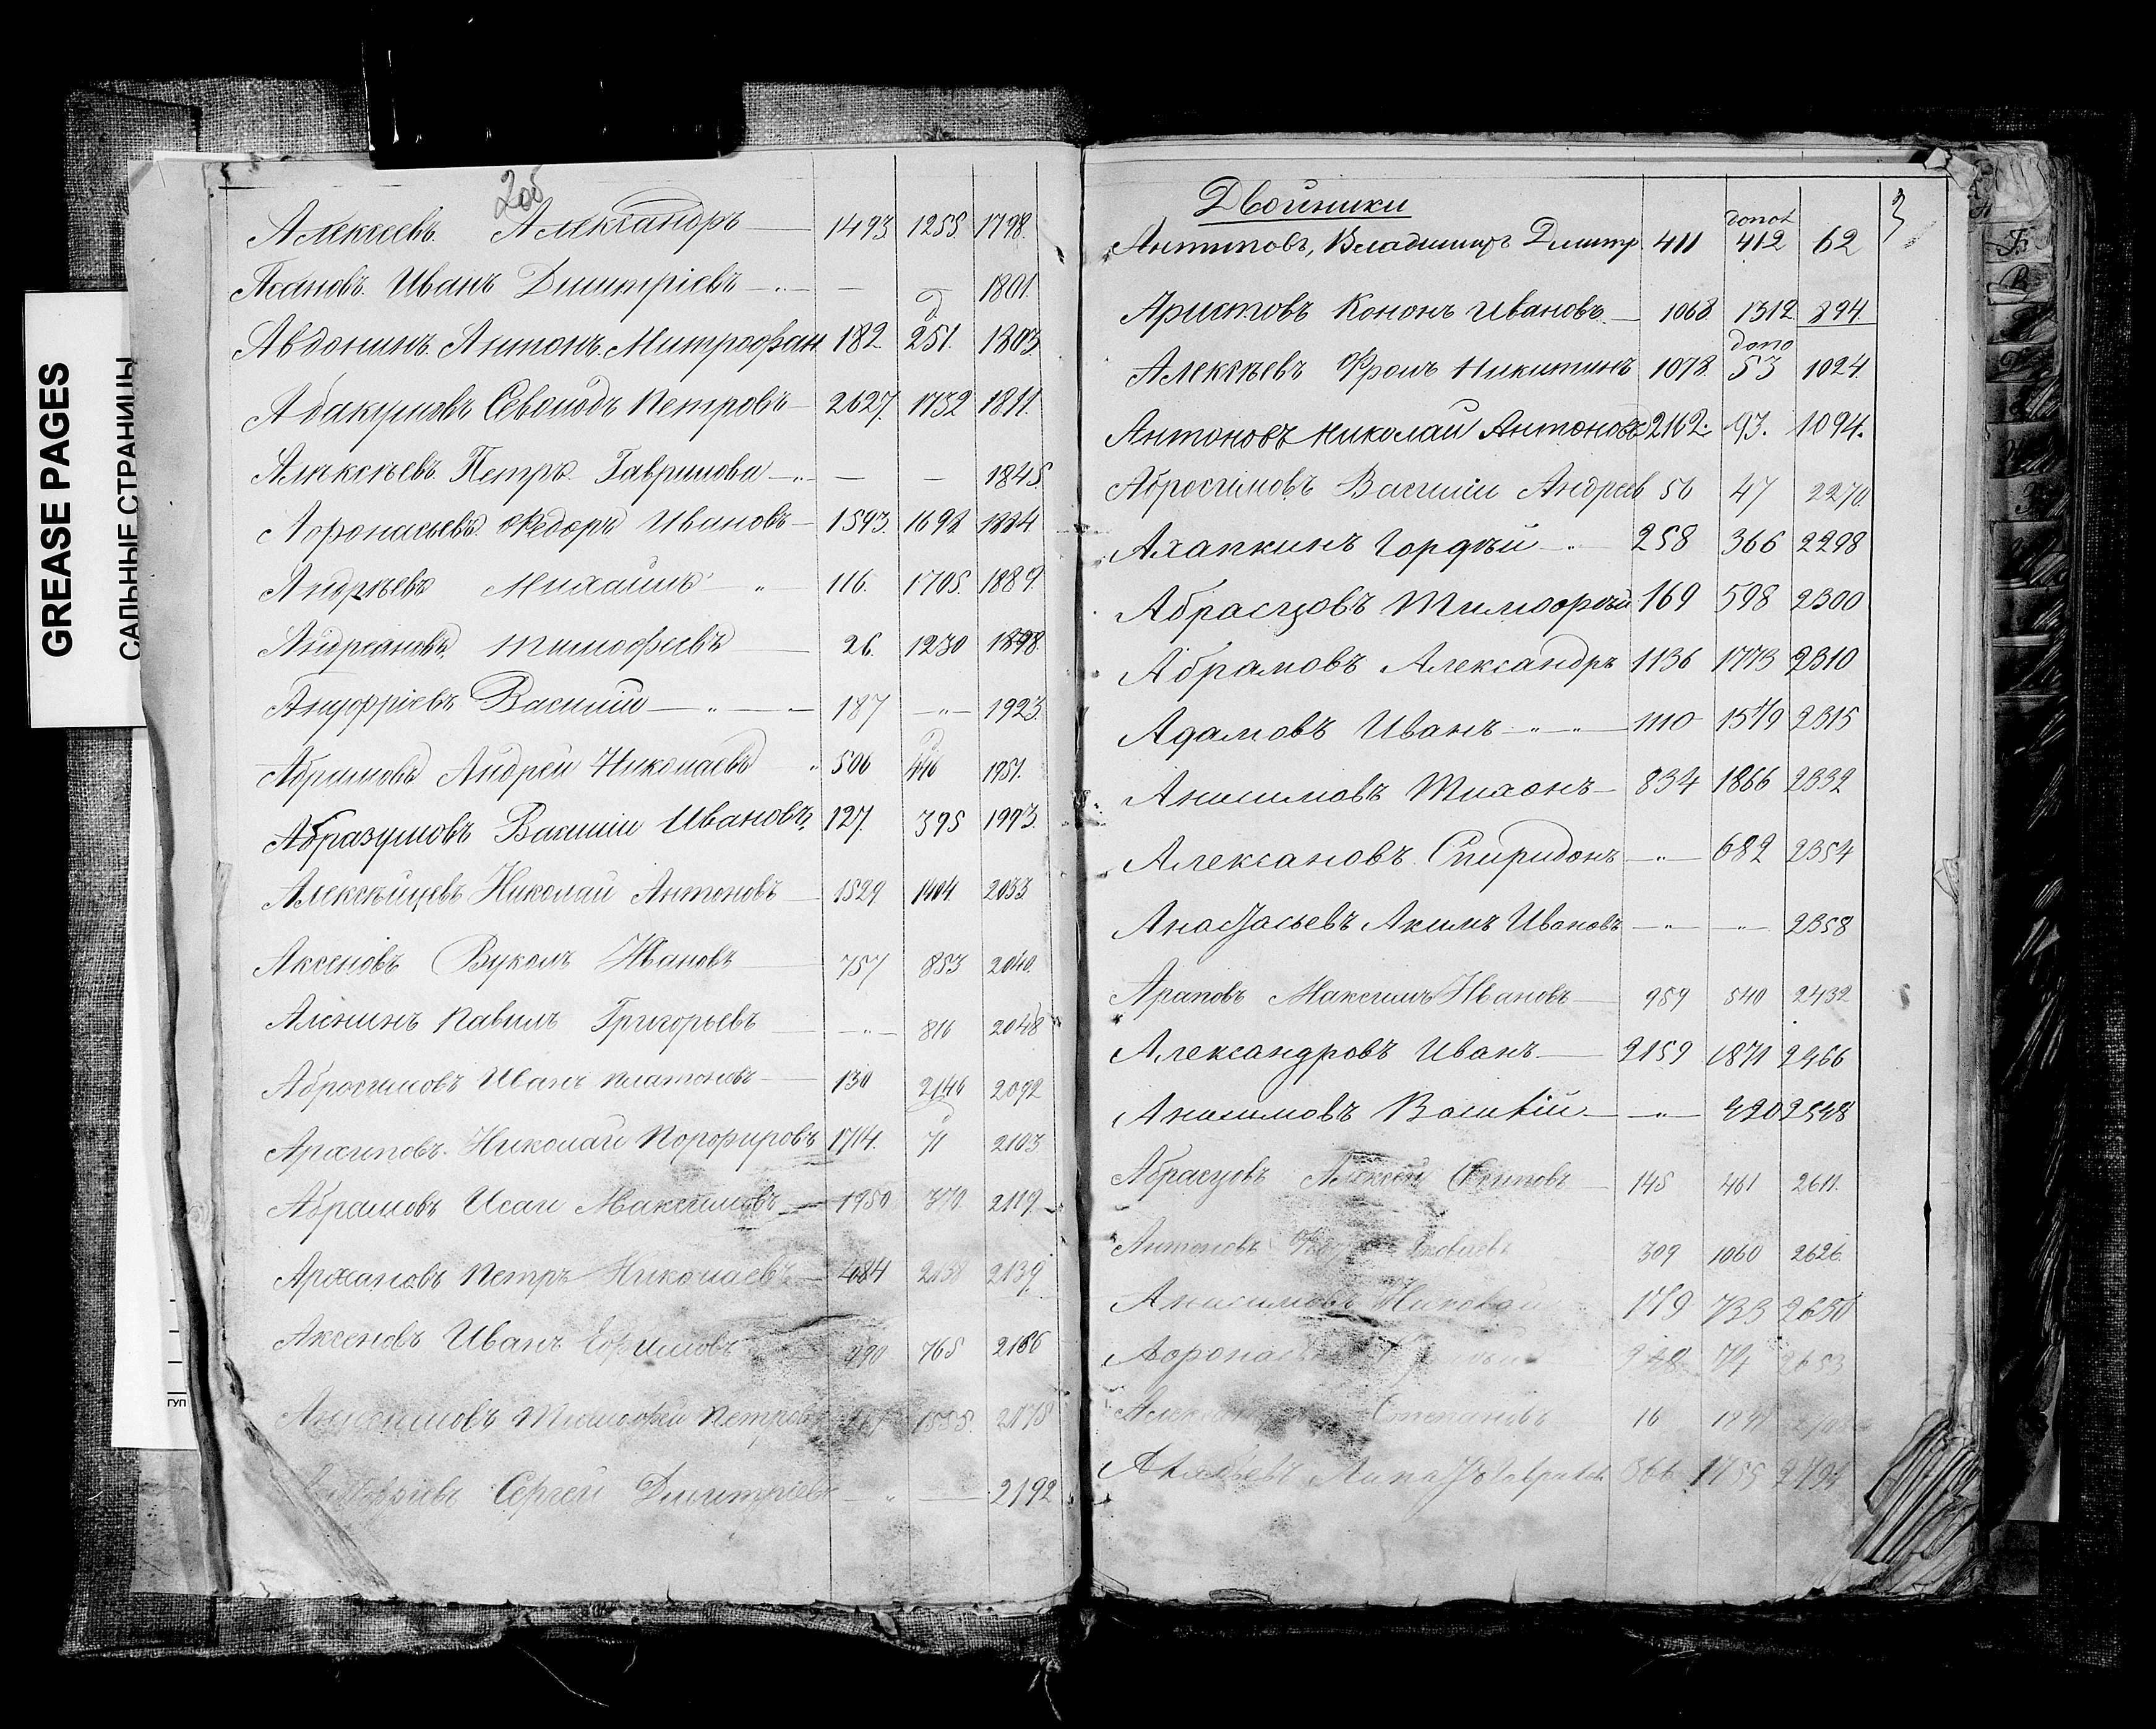 GREASE PAGES
САЛЬНЫЕ СТРАНИЦЫ
2об
Алексеевъ Александръ 1493 1255 1798
Иванъ Дмитріевъ — 1801
Авдонинъ Антонъ Митрофан 182 251 1803
Абакумовъ Севолодъ Петровъ 2627 1732 1811
Алексѣевъ Петръ Гаврилова — — 1845
Афонасьевъ Федоръ Ивановъ 1593 1692 1884
Андрѣевъ Михаилъ 116 1705 1889
Андреяновъ Тимофеевъ 26 1230 1898
Ануфріевъ Василій 187 — 1923
Абрамовъ Андрей Николаевъ 506 446 1951
Абразумовъ Василій Ивановъ 127 395 1993
Алексѣйцевъ Николай Антоновъ 1529 1404 2033
Аксеновъ Вуколъ Ивановъ 757 853 2040
Аленинъ Павилъ Григорьевъ — 816 2048
Абросимовъ Иванъ Платоновъ 130 2146 2092
Архиповъ Николай Порфировъ 1714 71 2103
Абрамовъ Исаи Максимовъ 1950 370 2119
Архановъ Петръ Николаевъ 484 2138 2139
Аксеновъ Иванъ Ефимовъ 990 765 2166
Анисимовъ Тимофей Петровъ 1555 2178
Сергей Дмитріевъ — — 2192
Двойники 3
допол
Антиповъ, Владимиръ Дмитр. 411 412 62
Аристовъ Кононъ Ивановъ 1068 1312 894
допо
Алексѣевъ Фролъ Никитинъ 1078 53 1024
Антоновъ Николай Антоновъ 2162 93 1094
Абросимовъ Василии Андреев 56 47 2270
Ахапкинъ Гордѣй 258 366 2298
Абрасцовъ Тимофѣй 169 598 2300
Абрамовъ Александръ 1136 1773 2310
Адамовъ Иванъ 1110 1579 2315
Анисимовъ Тихонъ 834 1866 2332
Алексановъ Спиридонъ — 682 2354
Анаѳасьевъ Акимъ Ивановъ — — 2358
Араповъ Максимъ Ивановъ 959 540 2432
Александровъ Иванъ 2159 1871 2466
Анисимовъ Василій — 320 2548
Абрасцовъ Алексей Осиповъ 145 461 2611
Антоновъ 309 1060 2626
Анисимовъ Николай 179 733 2650
74 2653
Степановъ 16
366 1755 2791